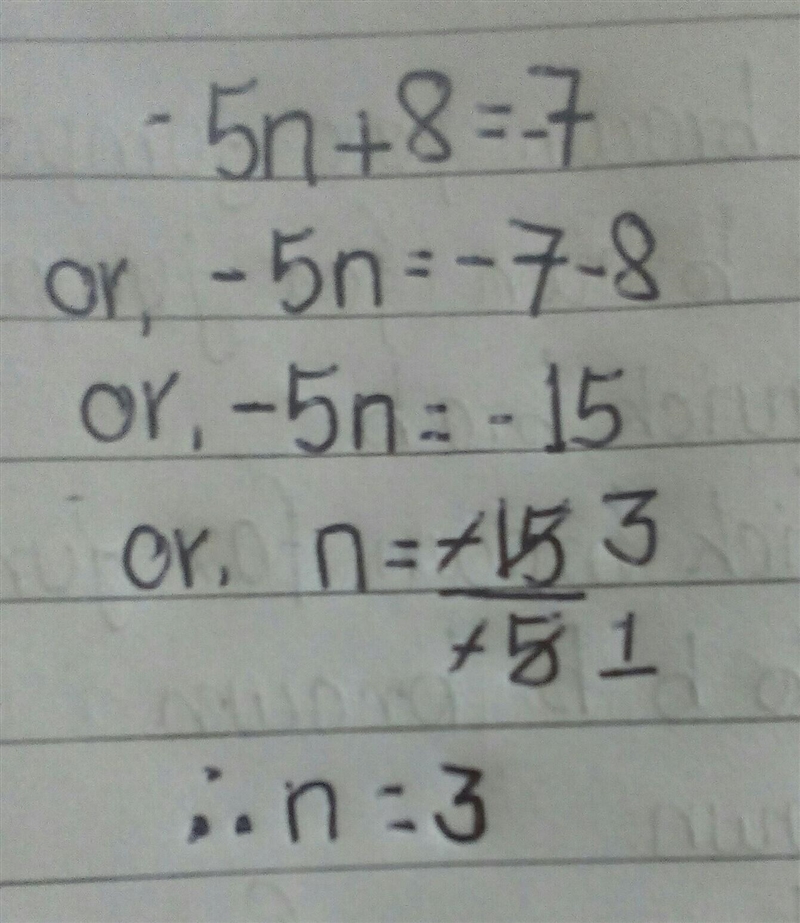 -5n+8=-7
or, -5n=-7-8
or, -5n=-15
or, n=-15 3
-5 1
∴n=3